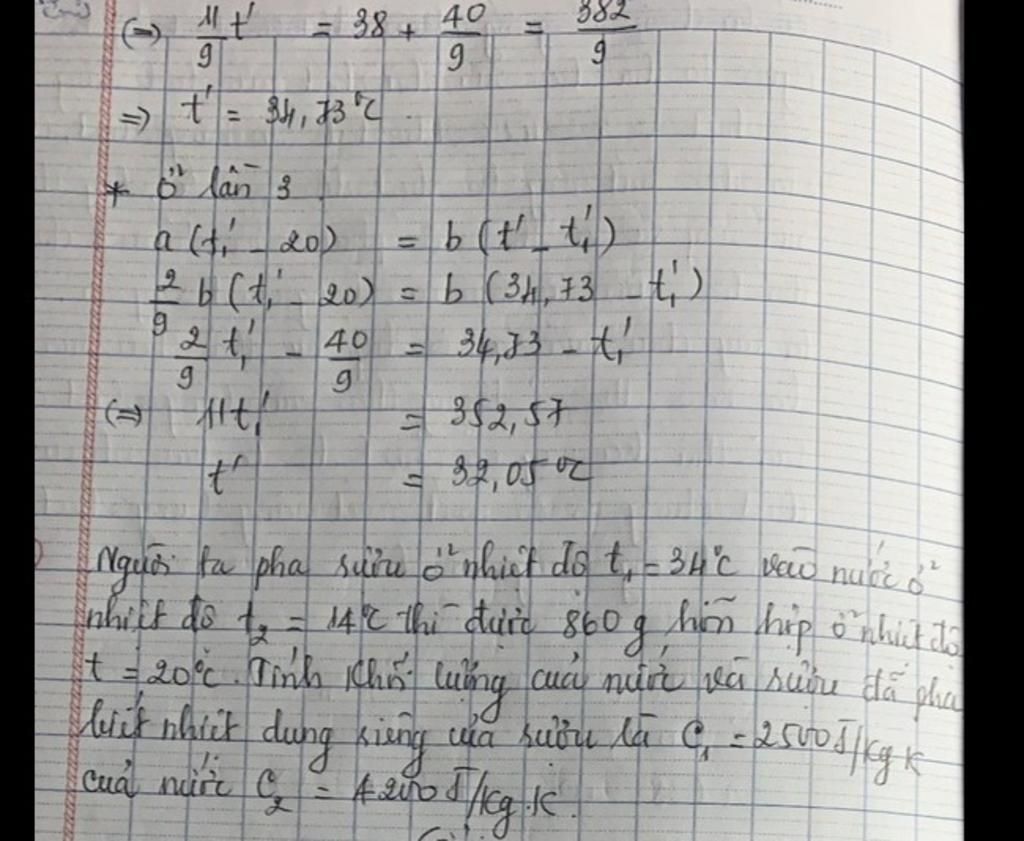 (=) 11/9 t' = 38 + 40/9 = 382/9
=> t' = 34,73°C
* Ở lần 3
a (t₁' - 20) = b (t' - t₁')
2/9 b (t₁' - 20) = b (34,73 - t₁')
2/9 t₁' - 40/9 = 34,73 - t₁'
(=) 11t₁' = 352,57
t' = 32,05°C
Người ta pha rượu ở nhiệt độ t₁ = 34°C vào nước ở
nhiệt độ t₂ = 14°C thì được 860g hỗn hợp ở nhiệt độ
t = 20°C. Tính khối lượng của nước và rượu đã pha
biết nhiệt dung riêng của rượu là C₁ = 2500J/kg.K
của nước C₂ = 4200J/kg.K.